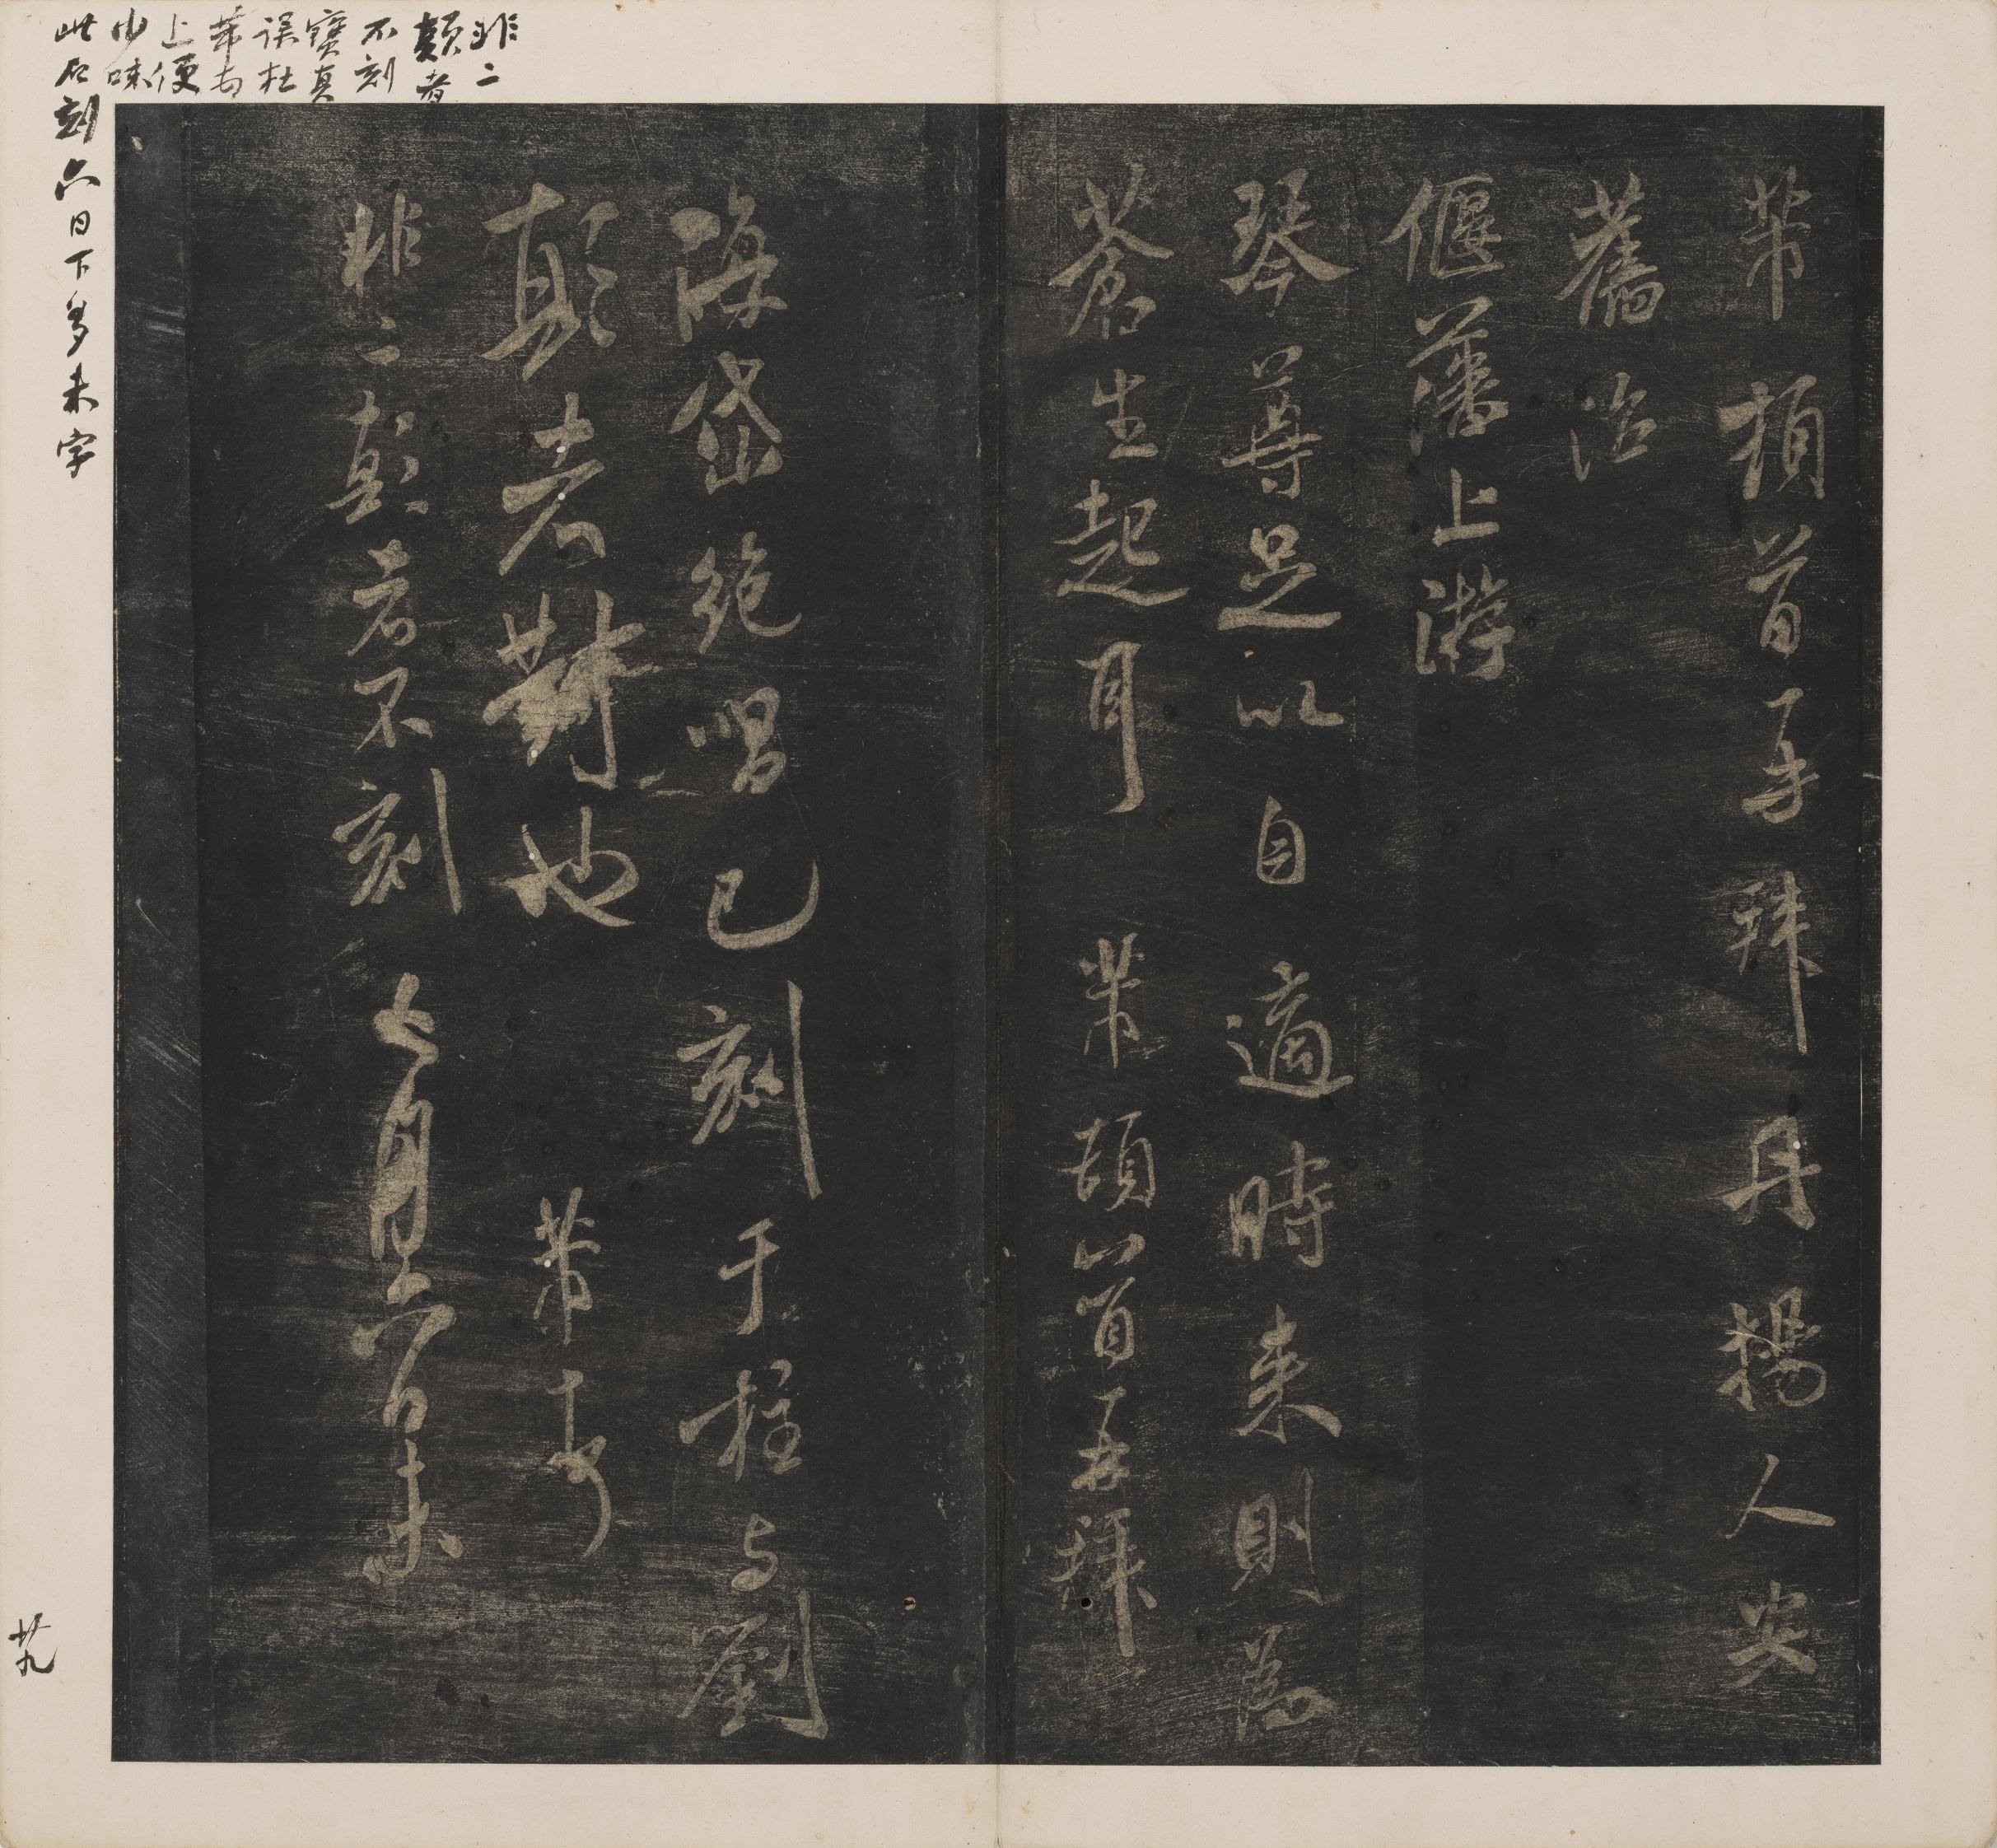 芾頓首再拜丹揚人安
舊治
偃藩上游
琴尊足以自適時来則為
蒼生起耳 芾頓首再拜
海岱絶唱已刻于柱与劉
顛者對也 芾
非二顛者不刻 七月六日未
非二
顛者
不刻
寶真
误杜
芾
上便
少味
此石刻六日下多未字
廿九